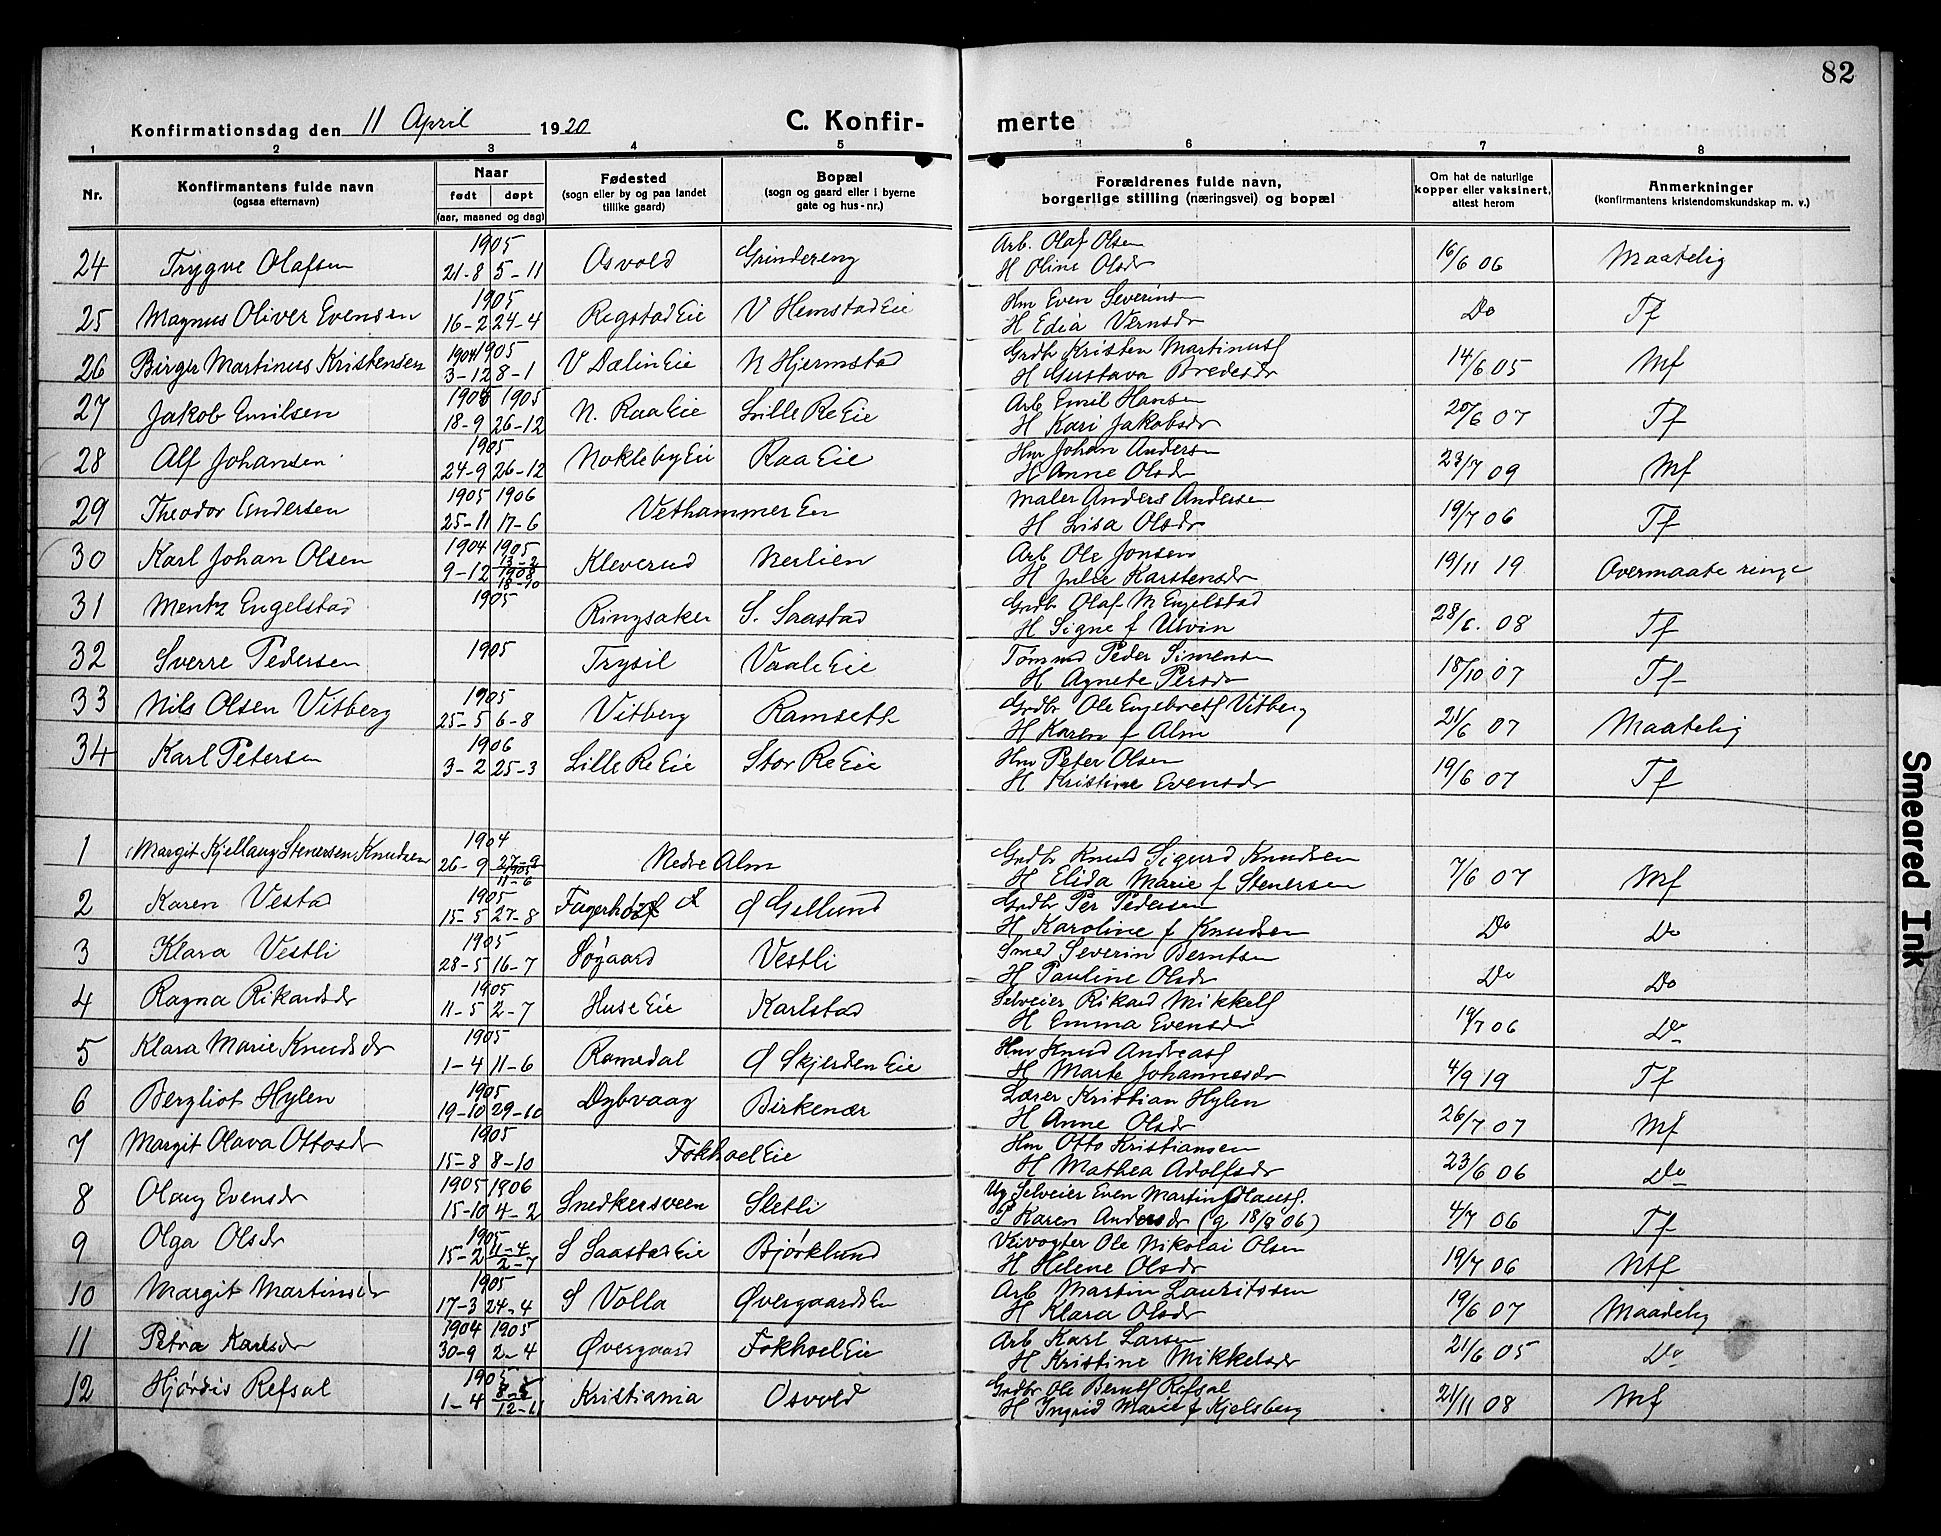 82
Konfirmationsdag den 11 April 1920 C. Konfir- merte
1 2 3 4 5 6 7 8
Nr. Konfirmantens fulde navn (ogsaa efternavn) Naar født døpt (aar, maaned og dag) Fødested (sogn eller by og paa landet tillike gaard) Bopæl (sogn og gaard eller i byerne gate og hus-nr.) Forældrenes fulde navn, borgerlige stilling (næringsvei) og bopæl Om hat de naturlige kopper eller vaksinert, attest herom Anmerkninger (konfirmantens kristendomskundskap m. v.)
1905 Arb. Olaf Olsen
24 Trygve Olafsen 21-8 5-11 Osvold Grindereng H Oline Olsdr 16/6 06 Maatelig
1905 Hm Even Severinsen
25 Magnus Oliver Evensen 16-2 24-4 Rigstad Eie V Hemstad Eie H Edia Vernsdr Do Tf
1904 1905 Grdbr Kristen Martinus
26 Birger Martinus Kristensen 3-12 8-1 V Dælin Eie N Hjermstad H Gustava Bredesdr 14/6 05 Mf
1905 Arb Emil Hansen
27 Jakob Emilsen 18-9 26-12 N. Raa Eie Lille Re Eie H Kari Jakobsdr 20/6 07 Tf
1905 Hm Johan Andersen
28 Alf Johansen 24-9 26-12 Nokleby Eie Raa Eie H Anne Olsdr 23/7 09 Mf
1905 1906 Maler Anders Andersen
29 Theodor Andersen 25-11 17-6 Vethammer En H Lisa Olsdr 19/7 06 Tf
1904 1905 Arb Ole Jonsen
30 Karl Johan Olsen 9-12 13-2 1908 18-10 Kleverud Nerlien H Julie Karstensdr 19/11 19 Overmaate ringe
1905 Grdbr Olaf M Engelstad
31 Mentz Engelstad Ringsaker S. Saastad H Signe f Ulvin 28/6. 08 Tf
1905 Tømmd Peder Simensen
32 Sverre Pedersen Trysil Vaale Eie H Agnete Persdr 18/10 07 Tf
1905 Grdbr Ole Engebrets Vitberg
33 Nils Olsen Vitberg 25-5 6-8 Vitberg Ramseth H Karen f Alm 21/6 07 Maatelig
1906 Hm Peter Olsen
34 Karl Petersen 3-2 25-3 Lille Re Eie Stor Re Eie H Kristine Evensdr 19/6 07 Tf
1904 Grdbr Knud Sigurd Knudsen
1 Margit Kjellaug Stenersen Knudsen 26-9 27-9 1905 11-6 Nedre Alm H Elida Marie f Stenersen 7/6 07 Mf
1905 Grdbr Per Pedersen
2 Karen Vestad 15-5 27-8 Ø Gellund H Karoline f Knudsen Do Do
1905 Smed Severin Berntsen
3 Klara Vestli 28-5 16-7 Søgaard Vestli H Pauline Olsdr Do Do
1905 Selveier Rikard Mikkels
4 Ragna Rikardsdr 11-5 2-7 Huse Eie Karlstad H Emma Evensdr 19/7 06 Do
1905 Hm Knud Andreas
5 Klara Marie Knudsdr 1-4 11-6 Romedal Ø Skjerden Eie H Marte Johannesdr 4/9 19 Tf
1905 Lærer Kristian Hylen
6 Bergliot Hylen 19-10 29-10 Dybvaag Birkenær H Anne Olsdr 26/7 07 Mf
1905 Hm Otto Kristiansen
7 Margit Olava Ottosdr 15-8 8-10 Fokhoel Eie H Mathea Adolfsdr 23/6 06 Do
1905 1906 Ug Selveier Even Martin Olaus.
8 Olaug Evensdr 15-10 4-2 Snedkersveen Sletli P Karen Andersdr (g 18/8 06) 4/7 06 Tf
1905 Veivogter Ole Nikolai Olsen
9 Olga Olsdr 15-2 11-4 2-7 S Saastad Eie Bjørklund H Helene Olsdr 19/7 06 Mtf
1905 Arb Martin Lauritssen
10 Margit Martinsdr 17-3 24-4 S Volla Øvergaards En H Klara Olsdr 19/6 07 Maadelig
1904 1905 Arb Karl Larsen
11 Petra Karlsdr 30-9 2-4 Øvergaard Fokhoel Eie H Kristine Mikkelsdr 21/6 05 Do
1905 Grdbr Ole Bernts Refsal
12 Hjørdis Refsal 1-4 12-11 Kristiania Osvold H Ingrid Marie f Kjelsberg 21/11 08 Mf
Smeared Ink